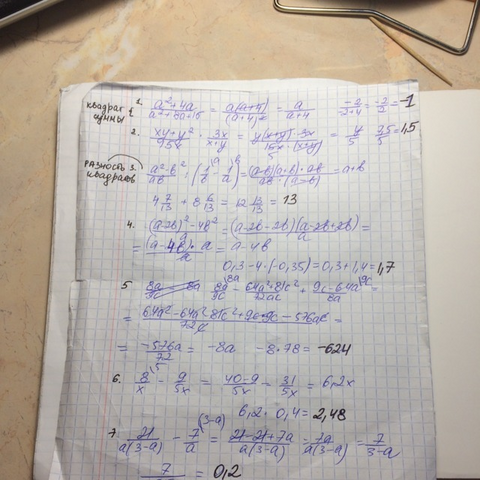 квадрат суммы
1. (a²+4a)/(a²+8a+16) = a(a+4)/(a+4)² = a/(a+4)   -2/(-2+4) = -2/2 = -1
2. (xy+y²)/15x · 3x/(x+y) = y(x+y)·3x/(15x·(x+y)) = y/5   7,5/5 = 1,5
разность квадратов
3. (a²-b²)/ab : (1/b - 1/a) = (a-b)(a+b)·ab/(ab·(a-b)) = a+b
4 7/13 + 8 6/13 = 12 13/13 = 13
4. ((a-2b)²-4b²)/a = (a-2b-2b)(a-2b+2b)/a =
= (a-4b)·a/a = a-4b
0,3-4·(-0,35)=0,3+1,4=1,7
5 8a/9c - (64a²+81c²)/72ac + (9c-64a)/8a
= -576a/72 = -8a   -8·78 = -624
6. 8/x - 9/5x = (40-9)/5x = 31/5x = 6,2x
6,2·0,4=2,48
7 21/a(3-a) - 7/a (3-a) = (21-21+7a)/a(3-a) = 7a/a(3-a) = 7/(3-a)
7 = 0,2